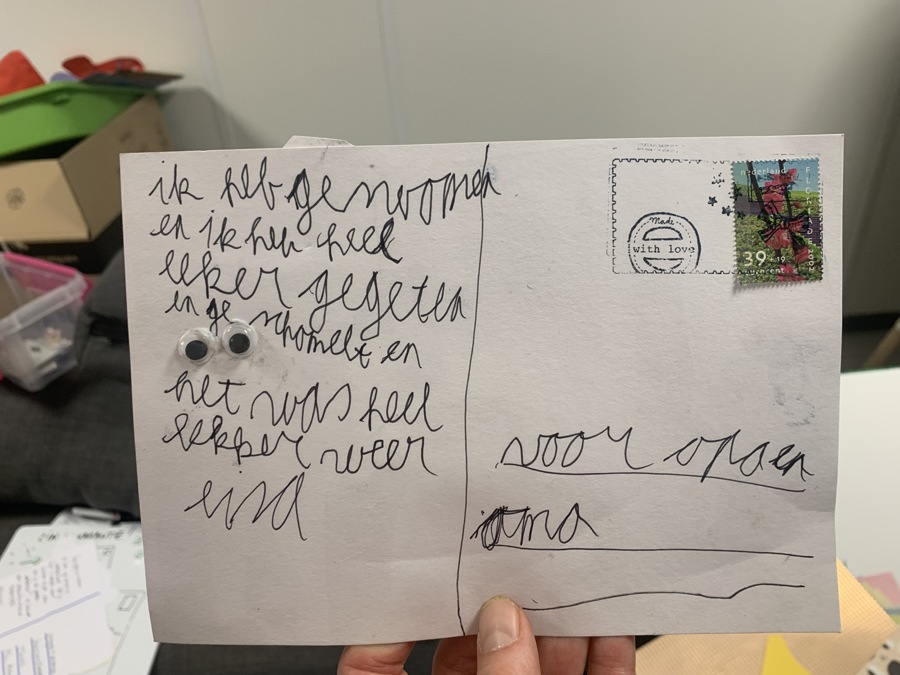 ik heb genoomen
en ik heb heel
leker gegeten
en ge schomelt en
het was heel
lekker weer
eind
Made
with love
nederland
39 +19
eurocent
voor opa en
oma